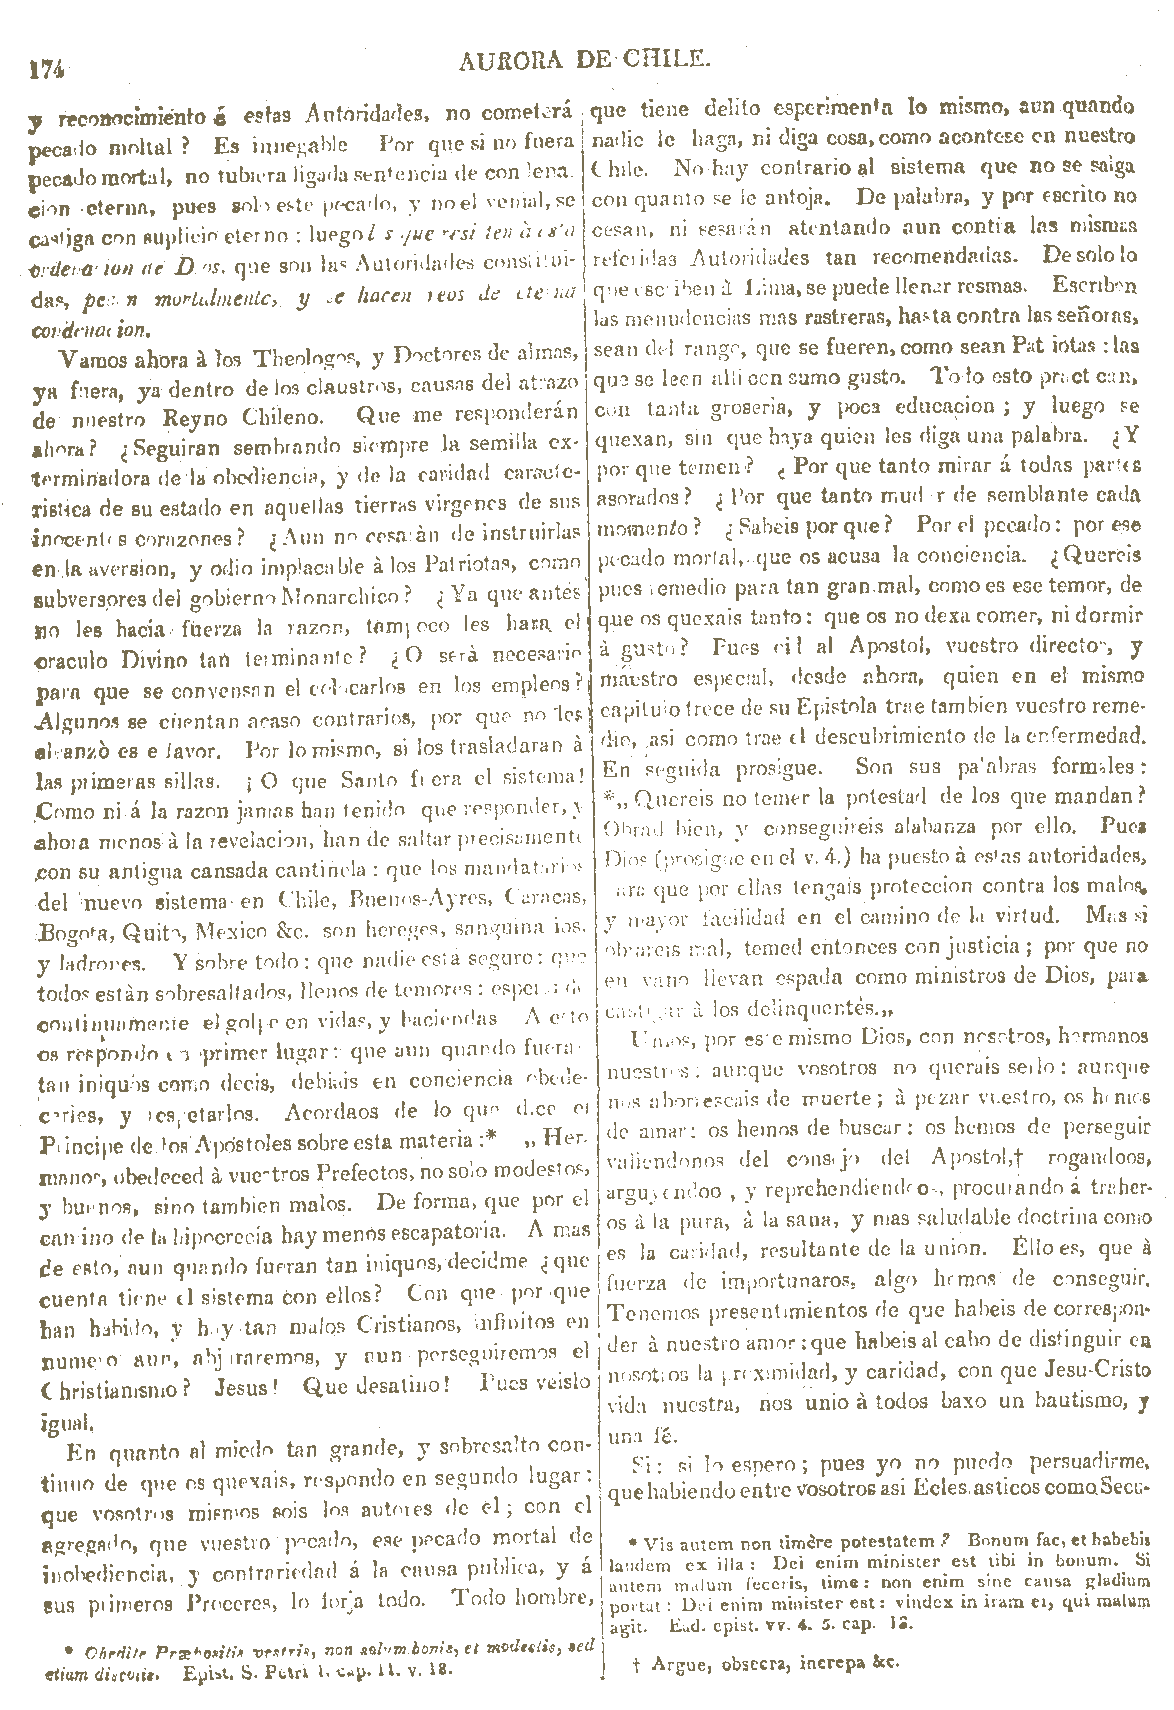 174
AURORA DE CHILE.
y reconocimiento á estas Autoridades, no cometerá
pecado moltal ? Es innegable Por que si no fuera
pecado mortal, no tubiera ligada sentencia de con
cion eterna, pues solo este pecado, y no el venial, se
castiga con suplicio eterno : luego
que son las Autoridades constitui-
das, mortalmente, y se hacen reos de eterna
condenacion.
Vamos ahora à los Theologos, y Doctores de almas,
ya fuera, ya dentro de los claustros, causas del atrazo
de nuestro Reyno Chileno. Que me responderán
ahora ? ¿Seguiran sembrando siempre la semilla ex-
terminadora de la obediencia, y de la caridad caracte-
ristica de su estado en aquellas tierras virgenes de sus
inocentes corazones ? ¿Aun no cesaràn de instruirlas
en la aversion, y odio implacable à los Patriotas, como
subversores del gobierno Monarchico ? ¿Ya que antés
no les hacia fuerza la razon, tampoco les hara el
oraculo Divino tan terminante ? ¿O será necesario
para que se convensan el colocarlos en los empleos ?
Algunos se cuentan acaso contrarios, por que no les
alcanzò ese favor. Por lo mismo, si los trasladaran à
las primeras sillas. ¡ O que Santo fuera el sistema !
Como ni á la razon jamas han tenido que responder, y
ahora menos à la revelacion, han de saltar precisamente
con su antigua cansada cantinela : que los mandatarios
del nuevo sistema en Chile, Buenos-Ayres, Caracas,
Bogota, Quito, Mexico &c. son hereges, sanguinarios,
y ladrones. Y sobre todo : que nadie está seguro : que
todos estàn sobresaltados, llenos de temores :
continuamente el golpe en vidas, y haciendas A esto
os respondo en primer lugar : que aun quando fueran
tan iniquos como decis, debiais en conciencia obede-
cerles, y respetarlos. Acordaos de lo que dice el
Principe de los Apóstoles sobre esta materia :* ,, Her-
manos, obedeced à vuestros Prefectos, no solo modestos,
y buenos, sino tambien malos. De forma, que por el
camino de la hipocrecía hay menos escapatoria. A mas
de esto, aun quando fueran tan iniquos, decidme ¿que
cuenta tiene el sistema con ellos ? Con que por que
han habido, y hay tan malos Cristianos, infinitos en
numero aun, abjuraremos, y aun perseguiremos el
Christianismo ? Jesus ! Que desatino ! Pues veislo
igual.
En quanto al miedo tan grande, y sobresalto con-
tinuo de que os quexais, respondo en segundo lugar :
que vosotros mismos sois los autores de él ; con el
agregado, que vuestro pecado, ese pecado mortal de
inobediencia, y contrariedad á la causa publica, y á
sus primeros Proceres, lo forja todo. Todo hombre,
* Obedite Præpositis vestris, non solum bonis, et modestis, sed
etiam discolis. Epist. S. Petri 1. cap. 11. v. 18.
que tiene delito esperimenta lo mismo, aun quando
nadie le haga, ni diga cosa, como acontese en nuestro
Chile. No hay contrario al sistema que no se salga
con quanto se le antoja. De palabra, y por escrito no
cesan, ni sesarán atentando aun contra las mismas
referidas Autoridades tan recomendadas. De solo lo
que escriben à Lima, se puede llenar resmas. Escriben
las menudencias mas rastreras, hasta contra las señoras,
sean del rango, que se fueren, como sean Patriotas : las
que se leen alli con sumo gusto. Todo esto practican,
con tanta groseria, y poca educacion ; y luego se
quexan, sin que haya quien les diga una palabra. ¿Y
por que temen ? ¿ Por que tanto mirar á todas partes
asorados ? ¿ Por que tanto mudar de semblante cada
momento ? ¿Sabeis por que ? Por el pecado : por ese
pecado mortal, que os acusa la conciencia. ¿Quereis
pues remedio para tan gran mal, como es ese temor, de
que os quexais tanto : que os no dexa comer, ni dormir
à gusto ? Pues oid al Apostol, vuestro director, y
máestro especial, desde ahora, quien en el mismo
capitulo trece de su Epistola trae tambien vuestro reme-
dio, asi como trae el descubrimiento de la enfermedad.
En seguida prosigue. Son sus palabras formales :
*,, Quereis no temer la potestad de los que mandan ?
Obrad bien, y conseguireis alabanza por ello. Pues
Dios (prosigue en el v. 4.) ha puesto à estas autoridades,
para que por ellas tengais proteccion contra los malos,
y mayor facilidad en el camino de la virtud. Mas si
obrareis mal, temed entonces con justicia ; por que no
en vano llevan espada como ministros de Dios, para
castigar à los delinquentés.,,
Unios, por ese mismo Dios, con nosotros, hermanos
nuestros : aunque vosotros no querais serlo : aunque
nos aborrescais de muerte ; à pezar vuestro, os hemos
de amar : os hemos de buscar : os hemos de perseguir
valiendonos del consejo del Apostol,† rogandoos,
arguyendoos, y reprehendiendoos, procurando á traher-
os à la pura, à la sana, y mas saludable doctrina como
es la caridad, resultante de la union. Éllo es, que à
fuerza de importunaros, algo hemos de conseguir.
Tenemos presentimientos de que habeis de correspon-
der à nuestro amor : que habeis al cabo de distinguir en
nosotros la proximidad, y caridad, con que Jesu-Cristo
vida nuestra, nos unio à todos baxo un bautismo, y
una fé.
Si : si lo espero ; pues yo no puedo persuadirme,
que habiendo entre vosotros asi Eclesiasticos como Secu-
* Vis autem non timère potestatem ? Bonum fac, et habebis
laudem ex illa : Dei enim minister est tibi in bonum. Si
autem malum feceris, time : non enim sine causa gladium
portat : Dei enim minister est : vindex in iram ei, qui malum
agit. Ead. epist. vv. 4. 5. cap. 13.
† Argue, obsecra, increpa &c.